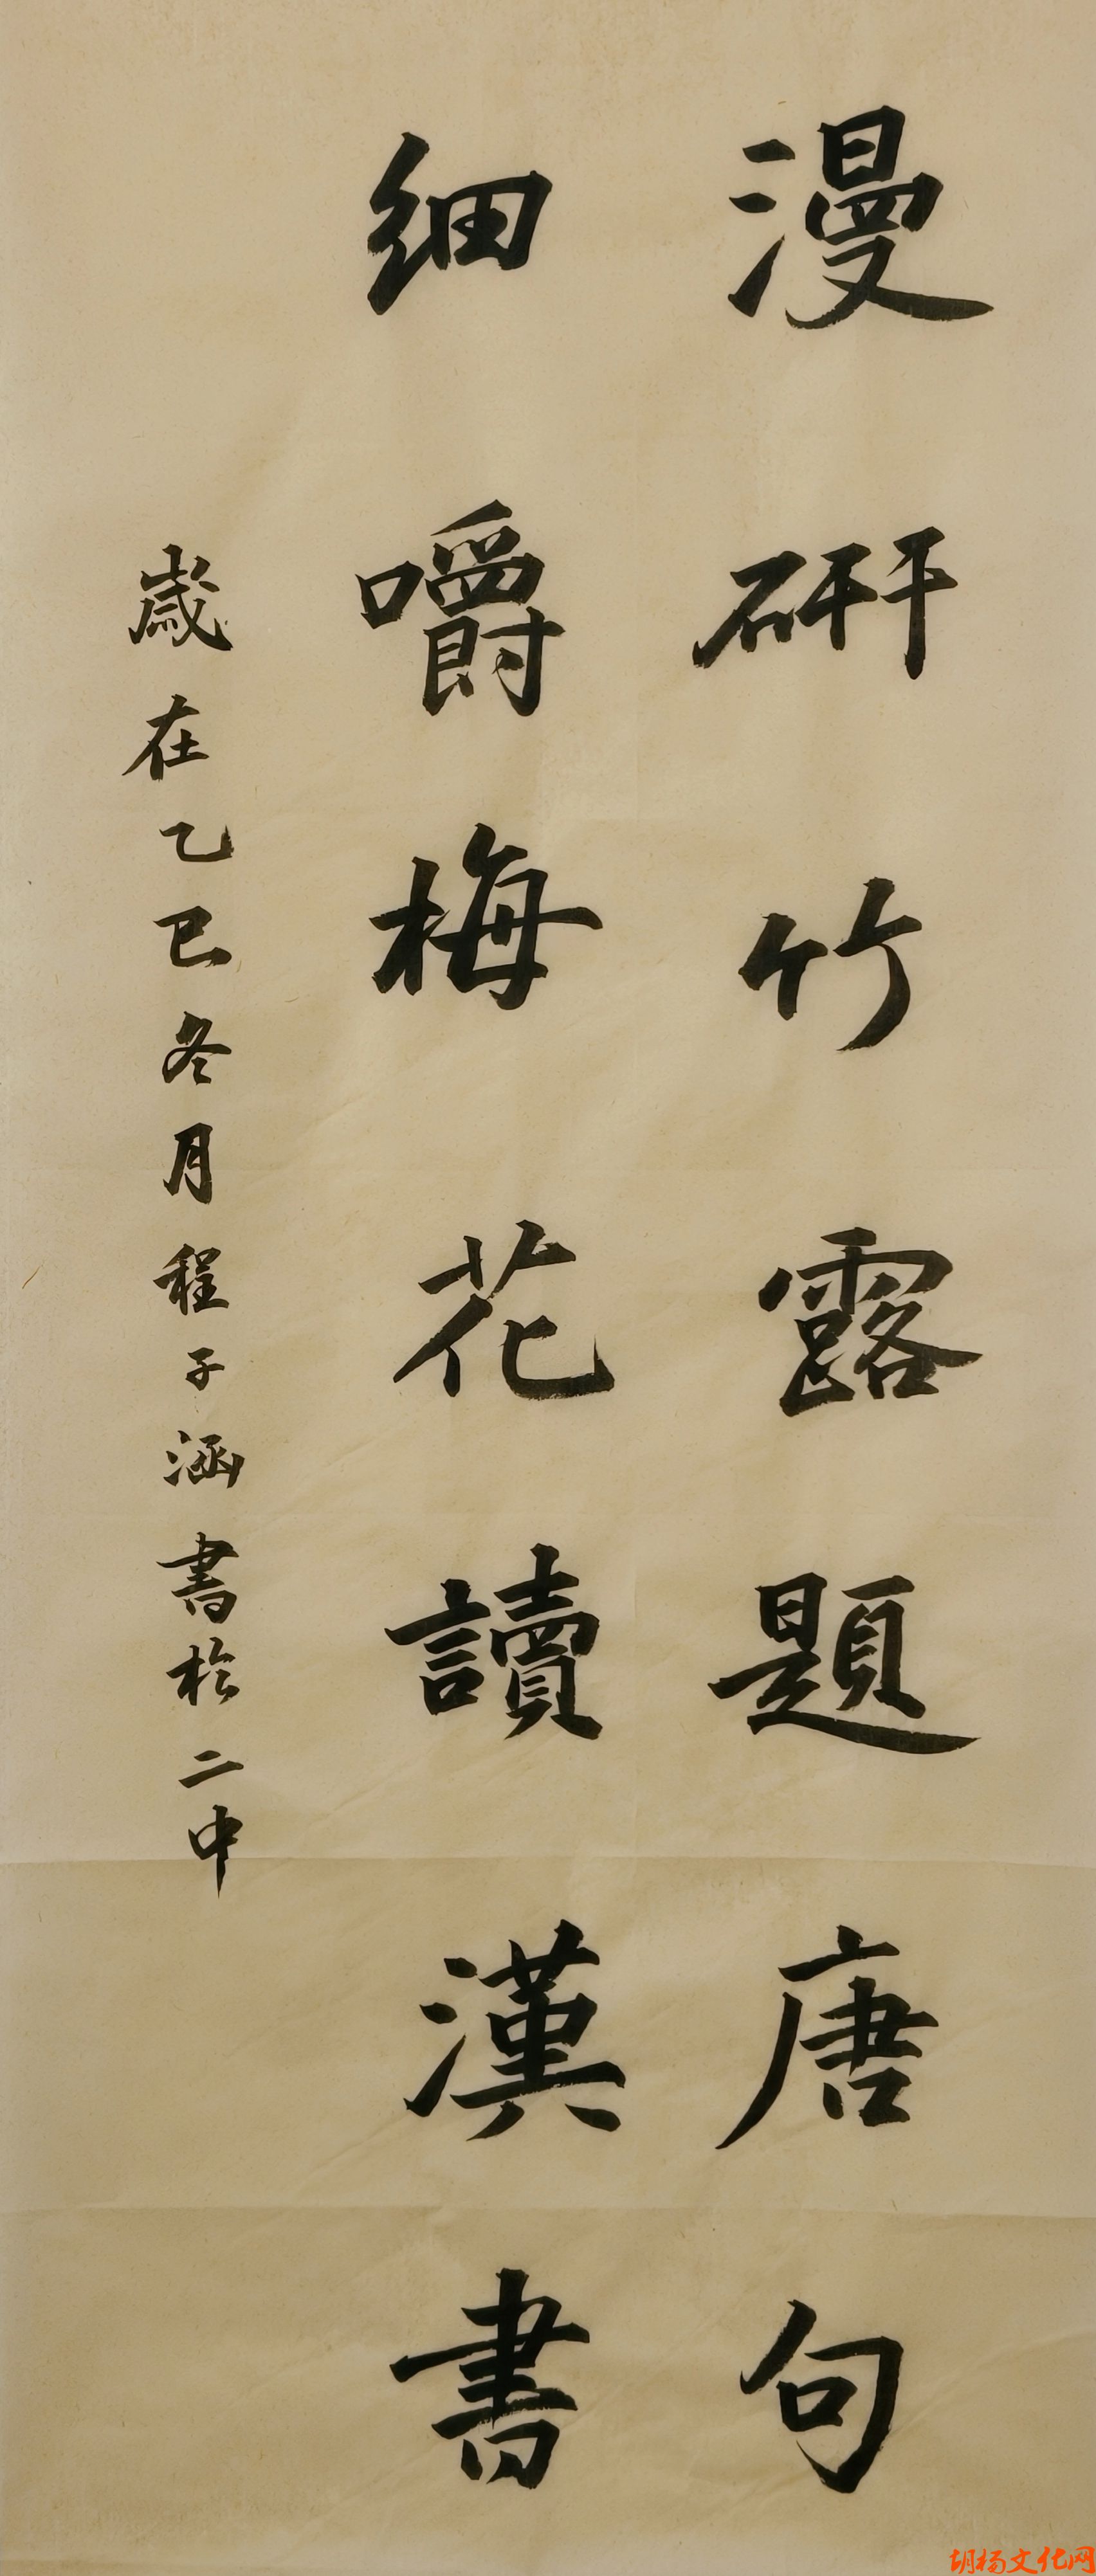 漫研竹露題唐句
細嚼梅花讀漢書
歲在乙巳冬月程子涵書於二中
胡杨文化网